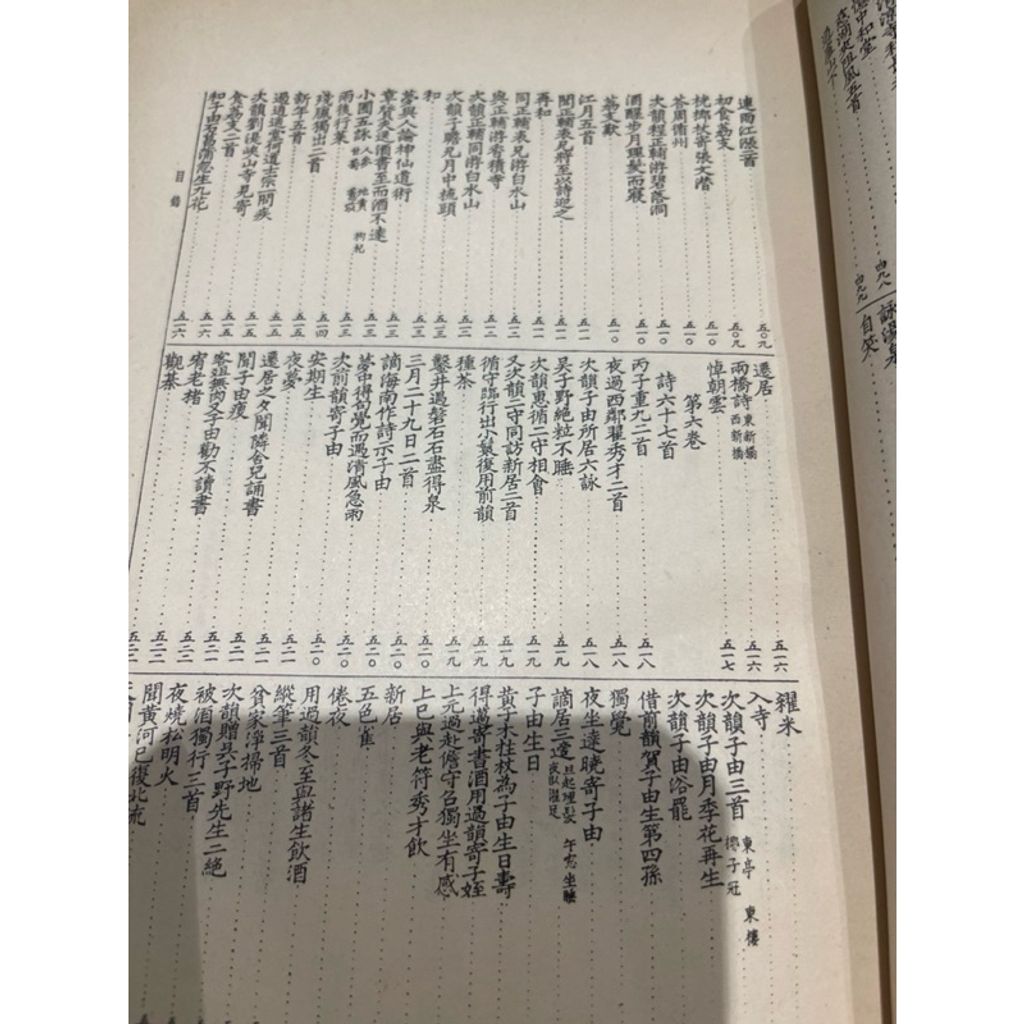 連雨江漲二首 五〇九
初食荔支 五〇九
桄榔杖寄張文潛 五一〇
答周循州 五一〇
次韻程正輔游碧落洞 五一〇
酒醒步月理髮而寢 五一〇
荔支歎 五一〇
江月五首 五一一
聞正輔表兄將至以詩迎之 五一一
再和 五一一
同正輔表兄游白水山 五一二
與正輔游香積寺 五一二
次韻正輔同游白水山 五一二
次韻子瞻
和
夢與人論神仙道術 五一三
章質夫送酒書至而酒不達 五一三
小圃五詠 人參 地黃 枸杞 甘菊 薏苡 五一三
雨後行菜 五一三
殘臘獨出二首 五一四
新年五首 五一五
次韻劉 峽山寺見寄 五一五
食荔支二首 五一五
和子由 石菖蒲忽生九花 五一六
目錄
遷居 五一六
兩橋詩 東新橋 西新橋 五一六
悼朝雲 五一七
第六卷
詩六十七首
丙子重九二首 五一八
夜過西鄰翟秀才二首 五一八
次韻子由所居六詠 五一八
吳子野絕粒不睡 五一九
次韻惠循二守相會 五一九
又次韻二守同訪新居二首 五一九
循守臨行出小鬟復用前韻 五一九
種茶 五一九
鑿井遇磐石石盡得泉 五二〇
三月二十九日二首 五二〇
謫海南作詩示子由 五二〇
夢中得句覺而遇清風急雨 五二〇
次前韻寄子由 五二〇
安期生 五二〇
夜夢 五二一
遷居之夕聞隣舍兒誦書 五二一
聞子由瘦 五二一
客俎無肉又子由勸不讀書 五二一
宥老楮 五二二
觀棊 五二二
糴米
入寺
次韻子由三首 東亭 東樓 椰子冠
次韻子由月季花再生
次韻子由浴罷
借前韻賀子由生第四孫
獨覺
夜坐達曉寄子由
謫居三適 旦起理髮 午窗坐睡 夜臥濯足
子由生日
黃子木柱杖為子由生日壽
得邁寄書酒用過韻寄子姪
上元過赴儋守召獨坐有感
上巳與老符秀才飲
新居
五色雀
倦夜
用過韻冬至與諸生飲酒
縱筆三首
貧家淨掃地
次韻贈吳子野先生二絕
被酒獨行三首
夜燒松明火
聞黃河已復北流
儋中和堂
慈湖夾阻風五首
四九八
四九九
詠湯泉
自笑